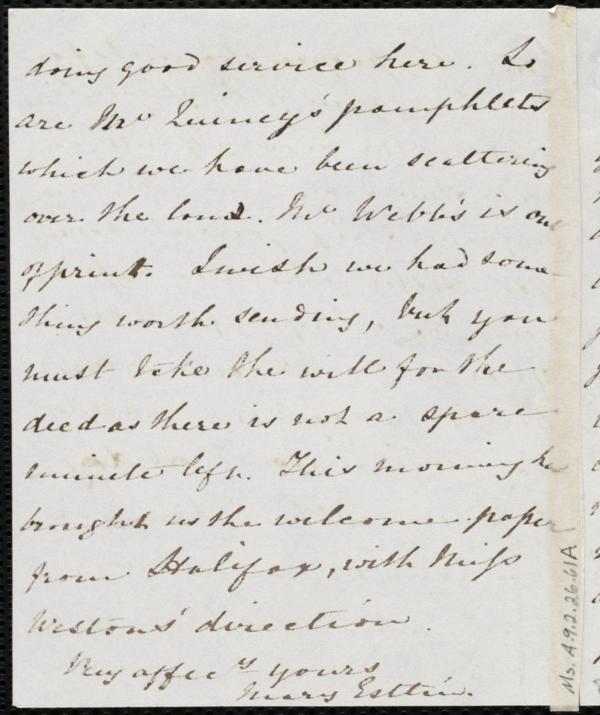 doing good service here. So
are Mr Quincy's pamphlets
which we have been scattering
over the land. Mr Webb's is out
of print. I wish we had some
thing worth sending, but you
must take the will for the
deed as there is not a spare
minute left. This morning has
brought us the welcome paper
from Halifax, with Miss
Westons' direction.
Very affecly yours
Mary Estlin.
Ms. A.9.2.26.61A